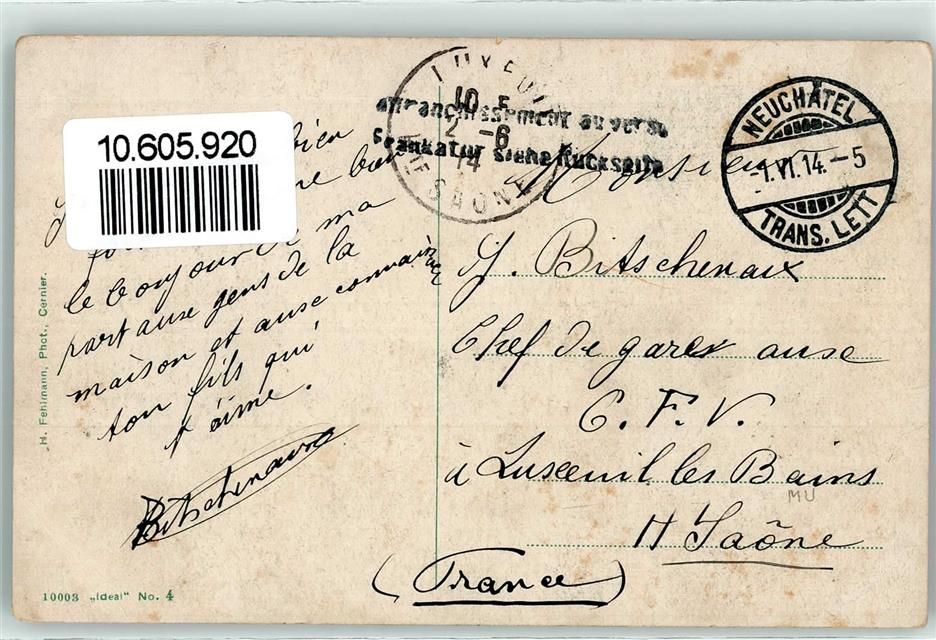 10.605.920
bien
le bonjour de ma
part ause gens de la
maison et ause
ton fils qui
t'aime.
Bitschenaux
H. Fehlmann, Phot., Cernier.
10003 „Ideal" No. 4
LUXEUIL
10 E
2 -6
14
HTE SAONE
Affranchissement au verso
Frankatur siehe Rückseite
NEUCHATEL
-1.VI.14.-5
TRANS. LETT
Monsieur
J. Bitschenaux
Chef de gare ause
C. F. V.
à Luxeuil les Bains
MU
H Saône
(France)